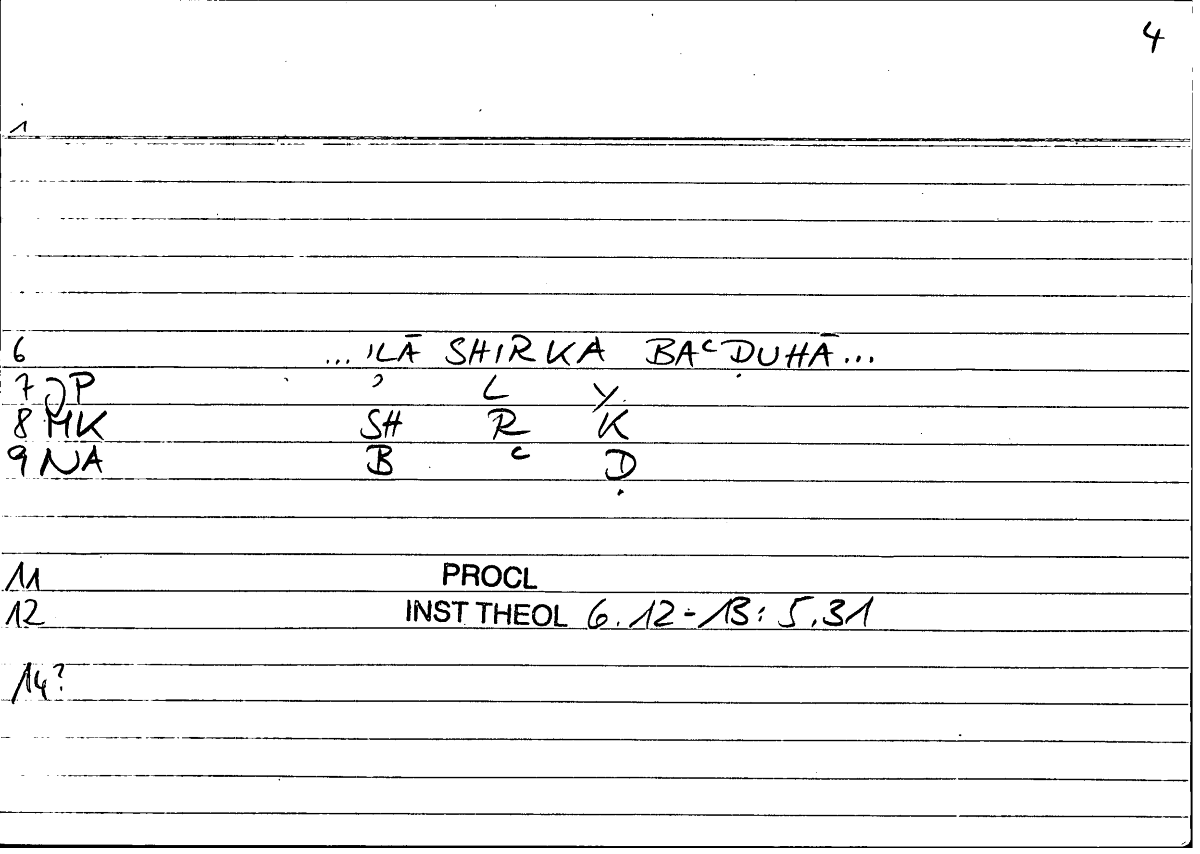 4
1
6 ... 'ILĀ SHIRKA BAᶜḌUHĀ ...
7 JP ʾ L Y
8 MK SH R K
9 NA B ᶜ Ḍ
11 PROCL
12 INST THEOL 6.12-13: 5.31
14?